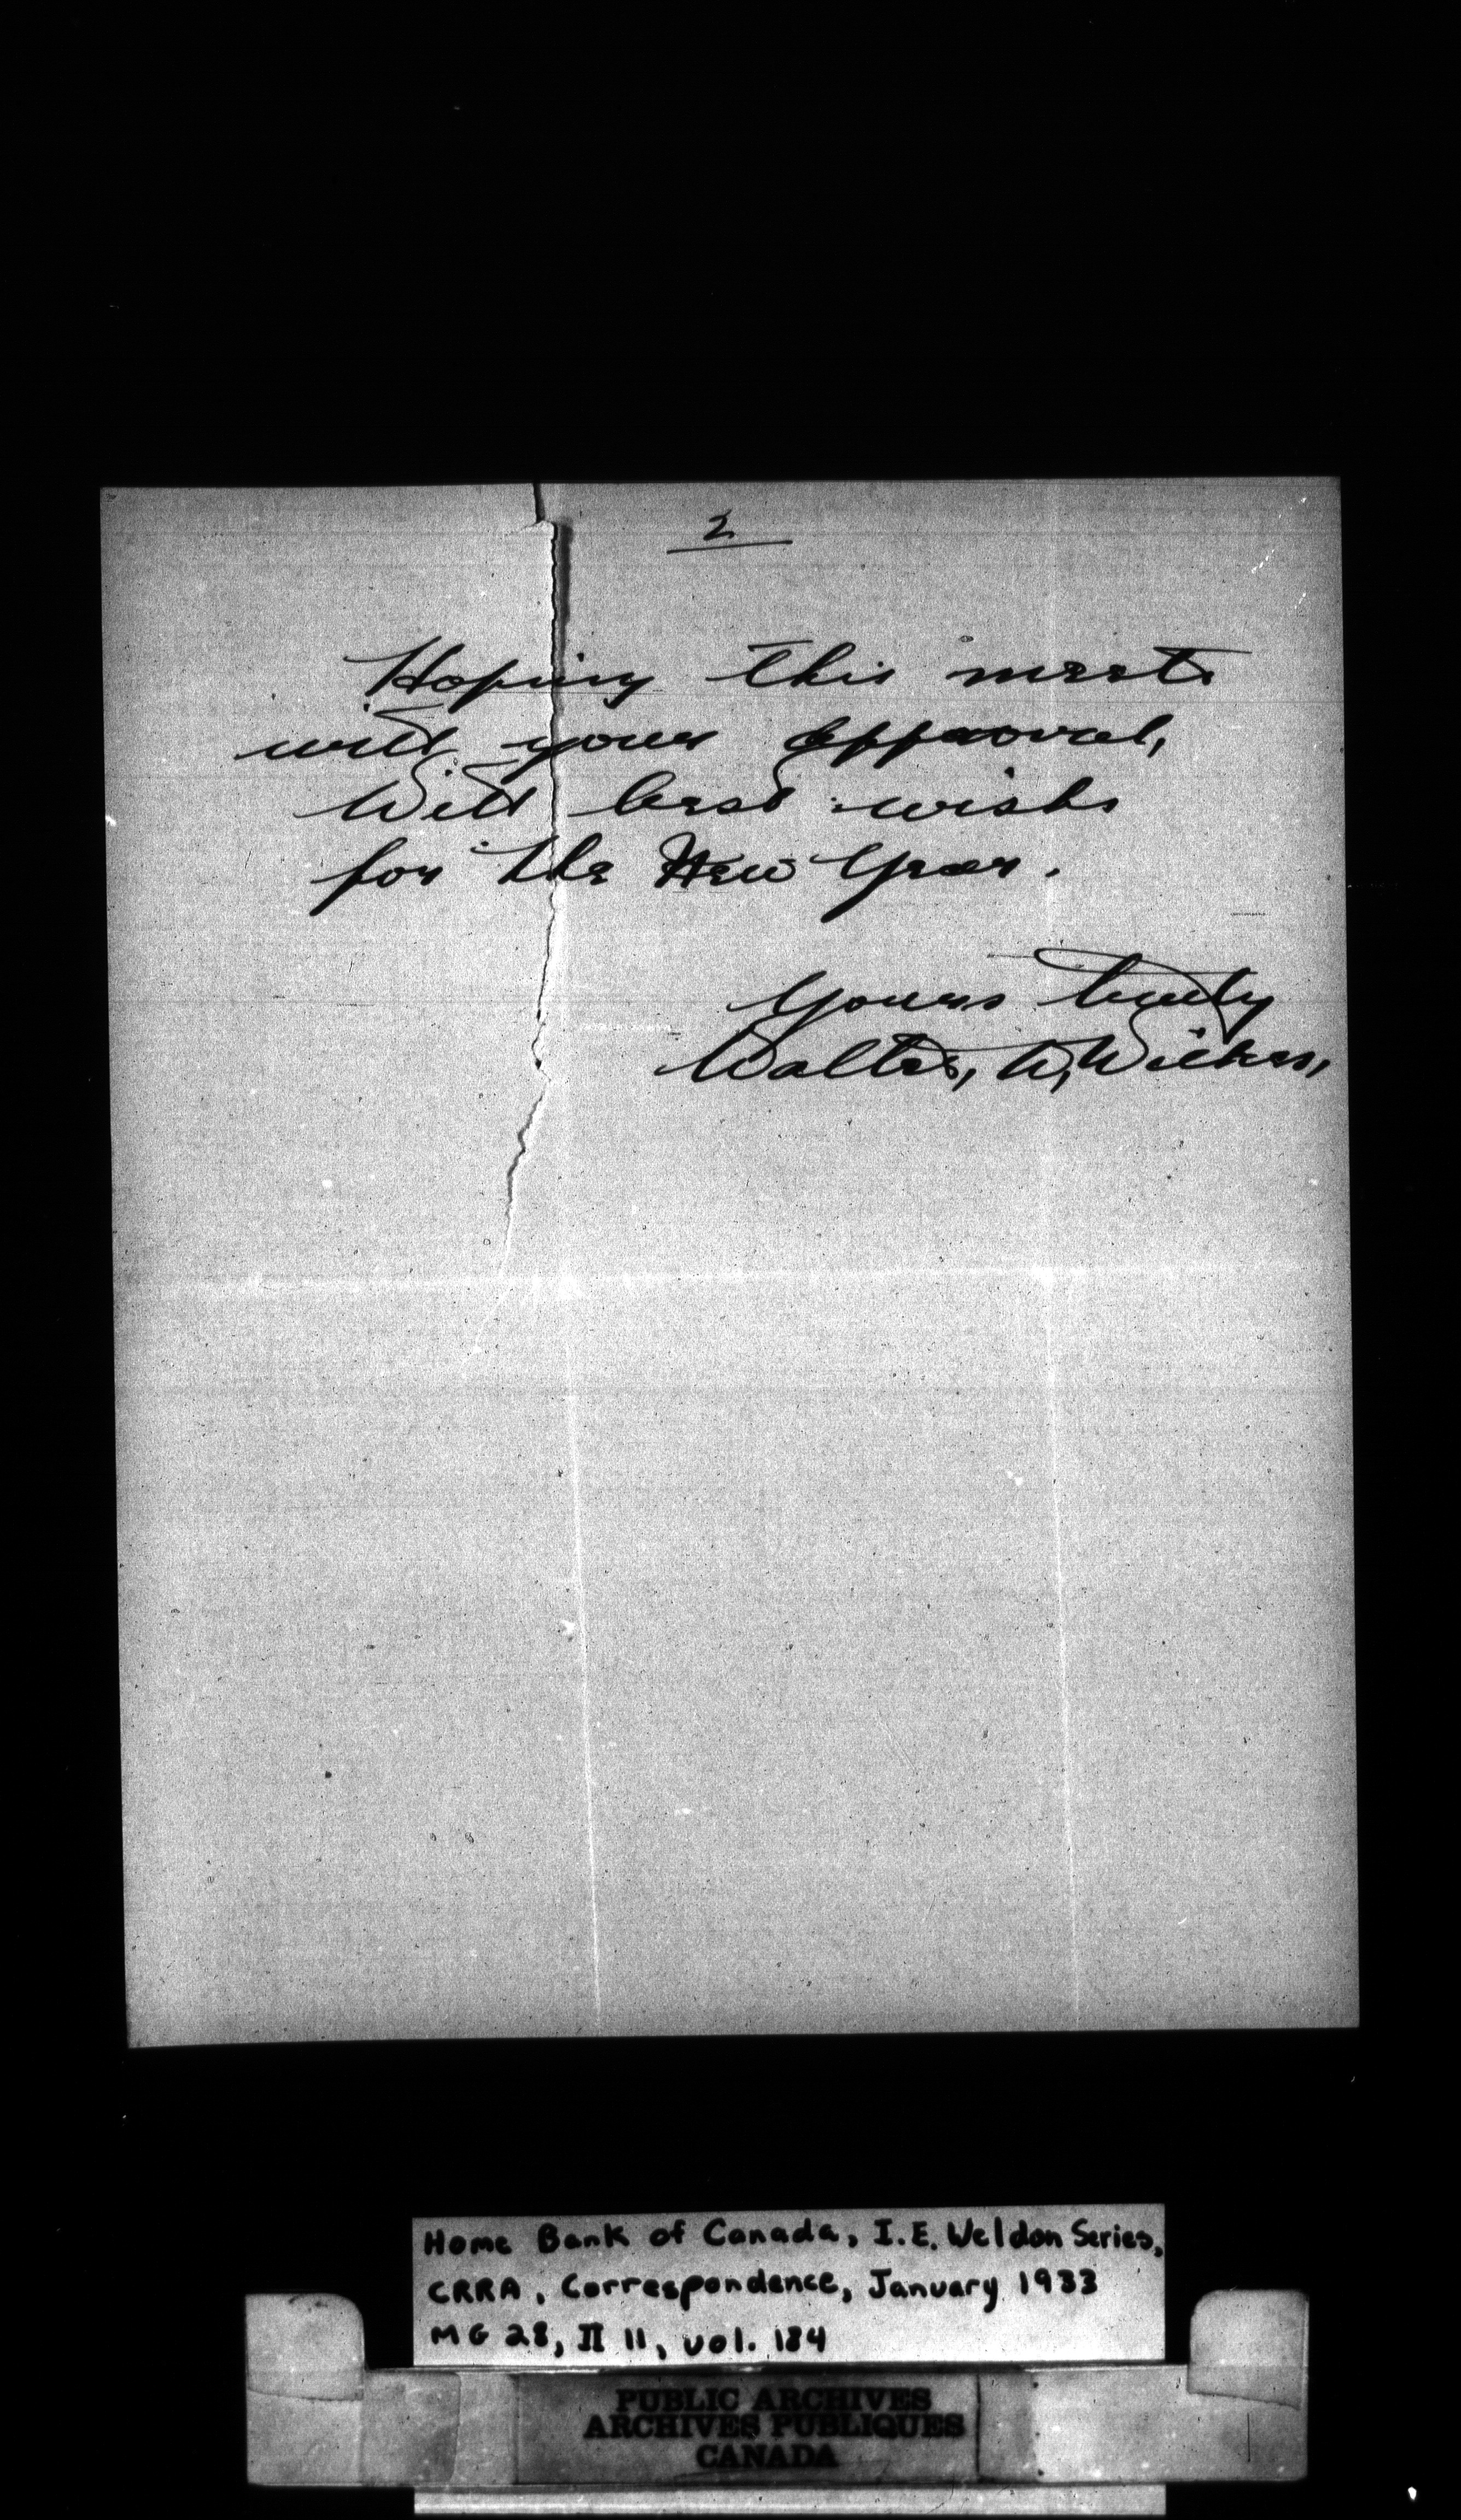 2
Hoping this meets
with your approval,
With best wishs
for the New Year.
Yours truly
Walter, W, Wilkes,
Home Bank of Canada, I.E. Weldon Series,
CRRA, Correspondence, January 1933
MG 28, II 11, vol. 184
PUBLIC ARCHIVES
ARCHIVES PUBLIQUES
CANADA